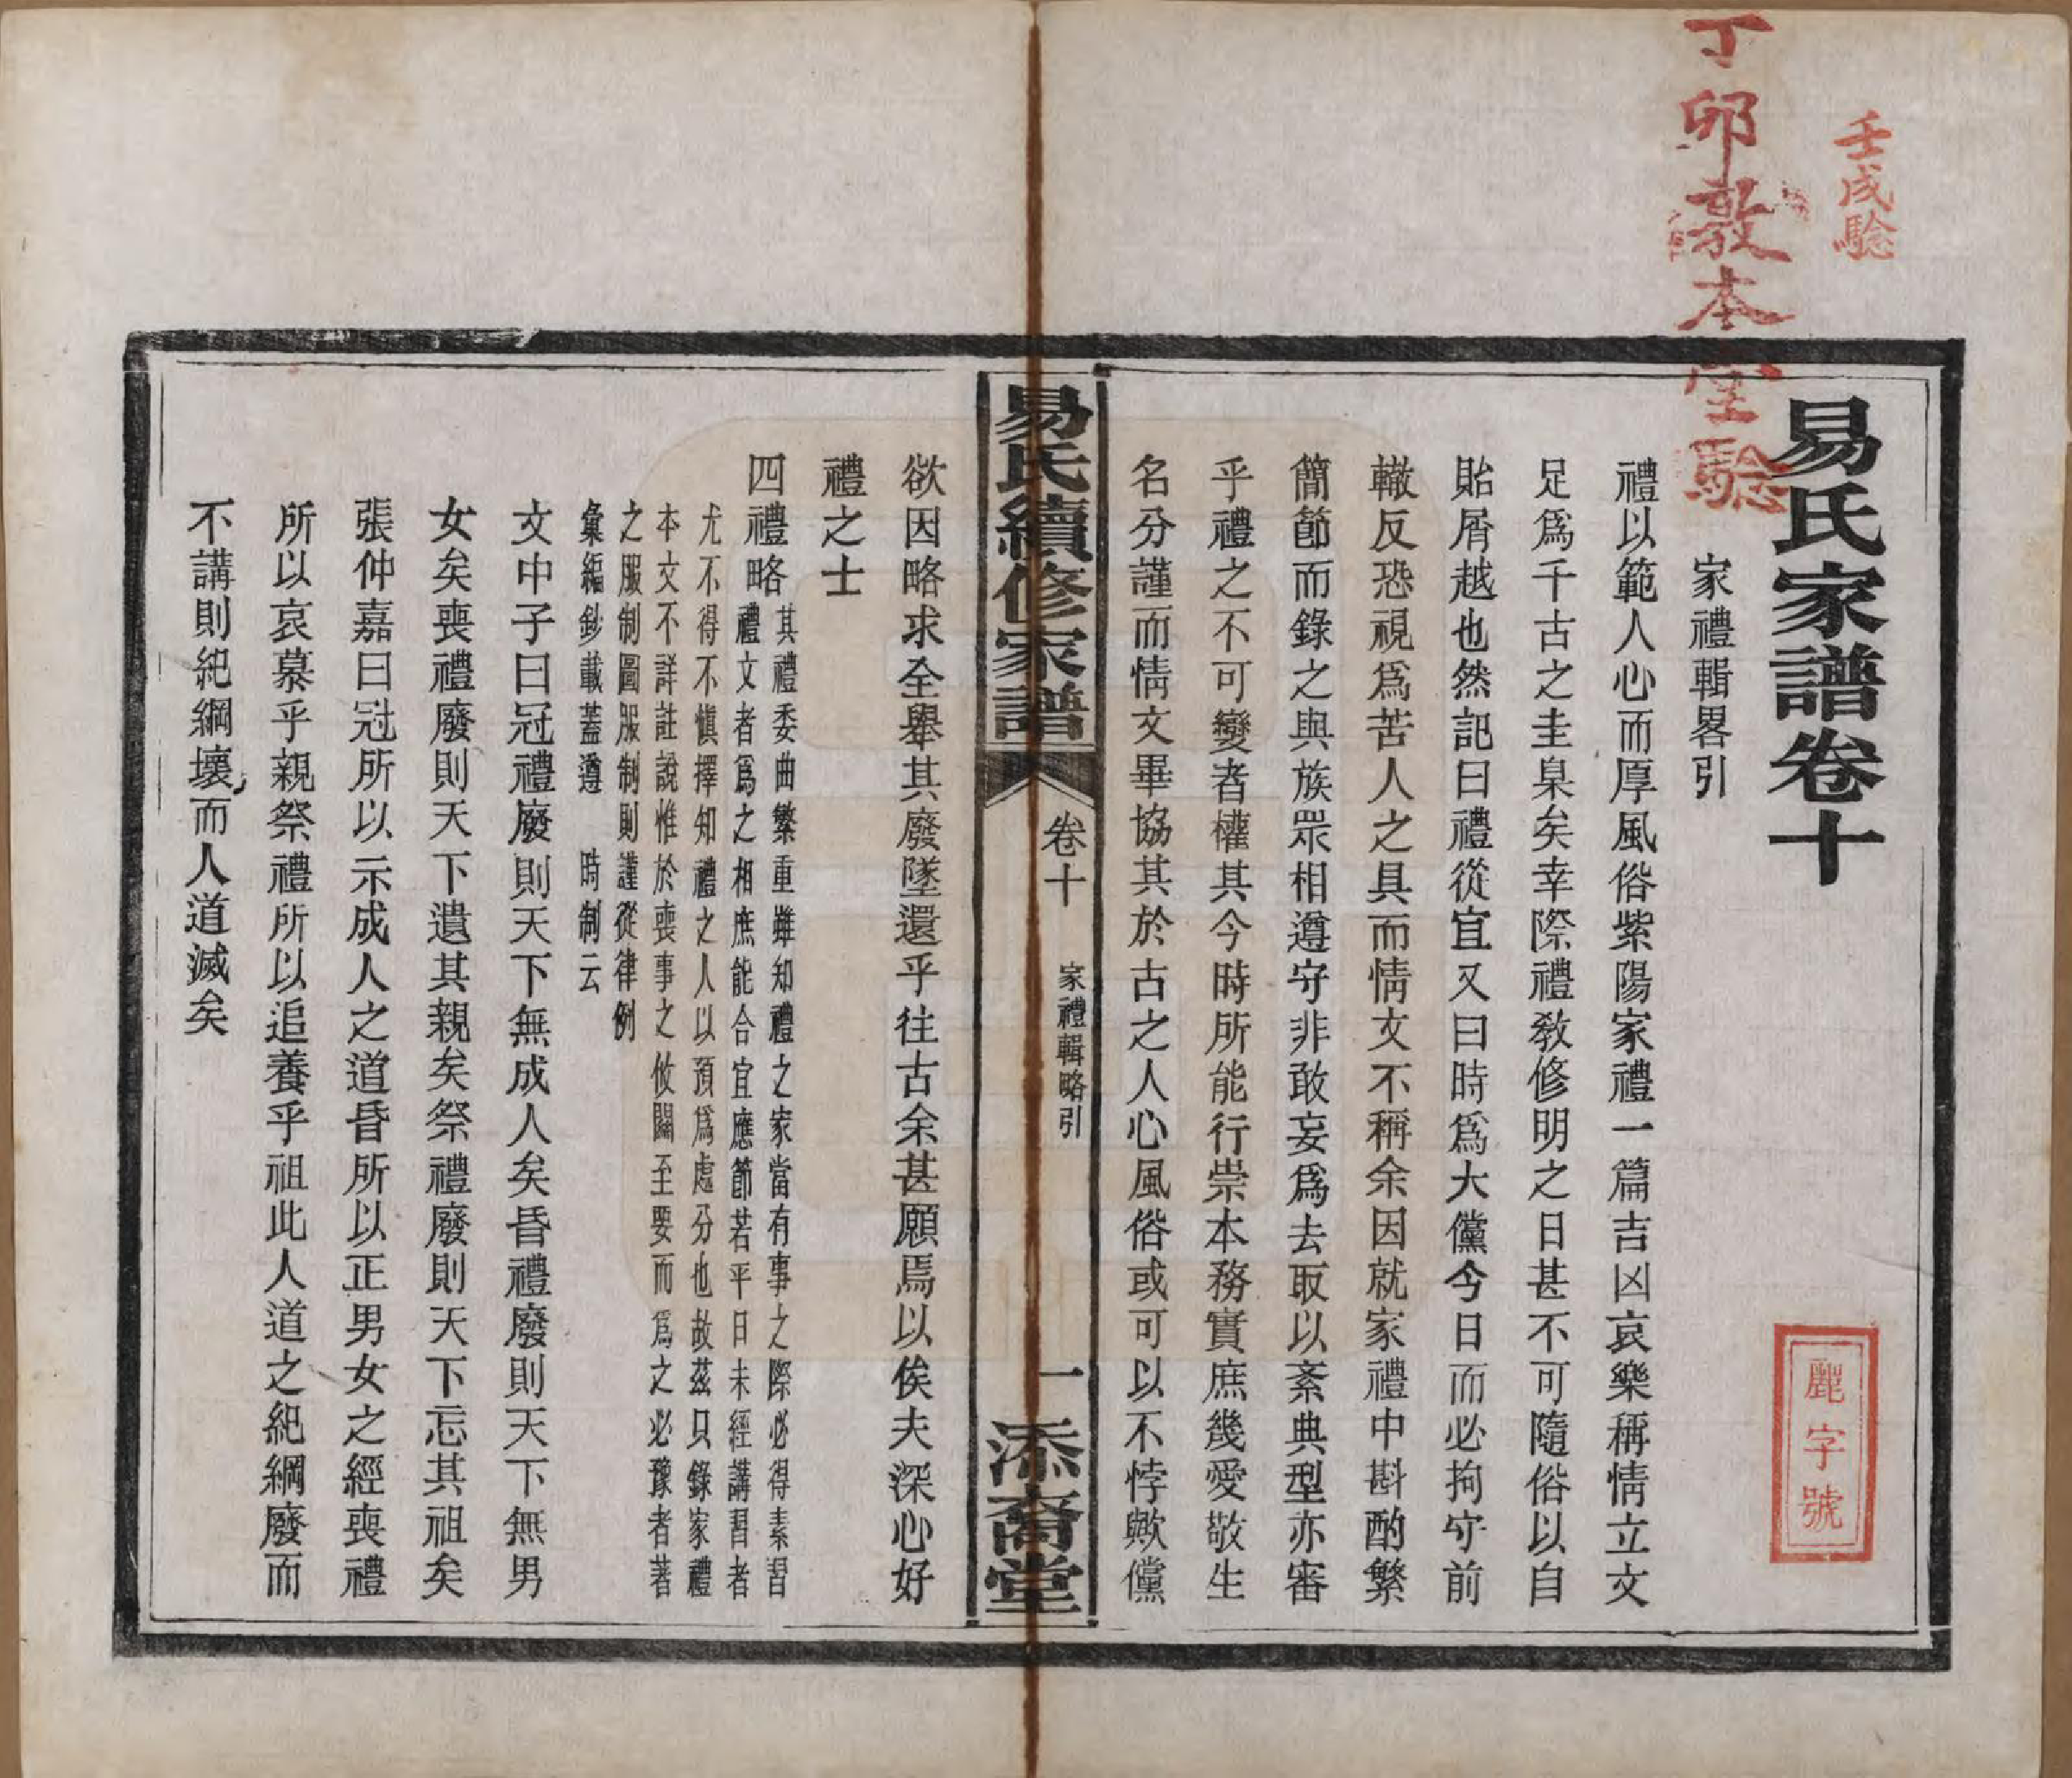 壬戌騐
丁卯敦本堂騐
易氏家譜卷十
麗字號
家禮輯畧引
禮以範人心而厚風俗紫陽家禮一篇吉凶哀樂稱情立文
足爲千古之圭臬矣幸際禮教修明之日甚不可隨俗以自
貽屑越也然記曰禮從宜又曰時爲大儻今日而必拘守前
轍反恐視爲苦人之具而情文不稱余因就家禮中斟酌繁
簡節而錄之與族眾相遵守非敢妄爲去取以紊典型亦審
乎禮之不可變者權其今時所能行崇本務實庶幾愛敬生
名分謹而情文畢協其於古之人心風俗或可以不悖歟儻
易氏續修家譜
卷十
家禮輯略引
一
添裔堂
欲因略求全舉其廢墜還乎往古余甚願焉以俟夫深心好
禮之士
四禮略
其禮委曲繁重雖知禮之家當有事之際必得素習
禮文者爲之相庶能合宜應節若平日未經講習者
尤不得不愼擇知禮之人以預爲處分也故茲只錄家禮
本文不詳註說惟於喪事之攸關至要而爲之必豫者著
之服制圖服制則謹從律例
彙編鈔載蓋遵 時制云
文中子曰冠禮廢則天下無成人矣昏禮廢則天下無男
女矣喪禮廢則天下遺其親矣祭禮廢則天下忘其祖矣
張仲嘉曰冠所以示成人之道昏所以正男女之經喪禮
所以哀慕乎親祭禮所以追養乎祖此人道之紀綱廢而
不講則紀綱壞而人道滅矣